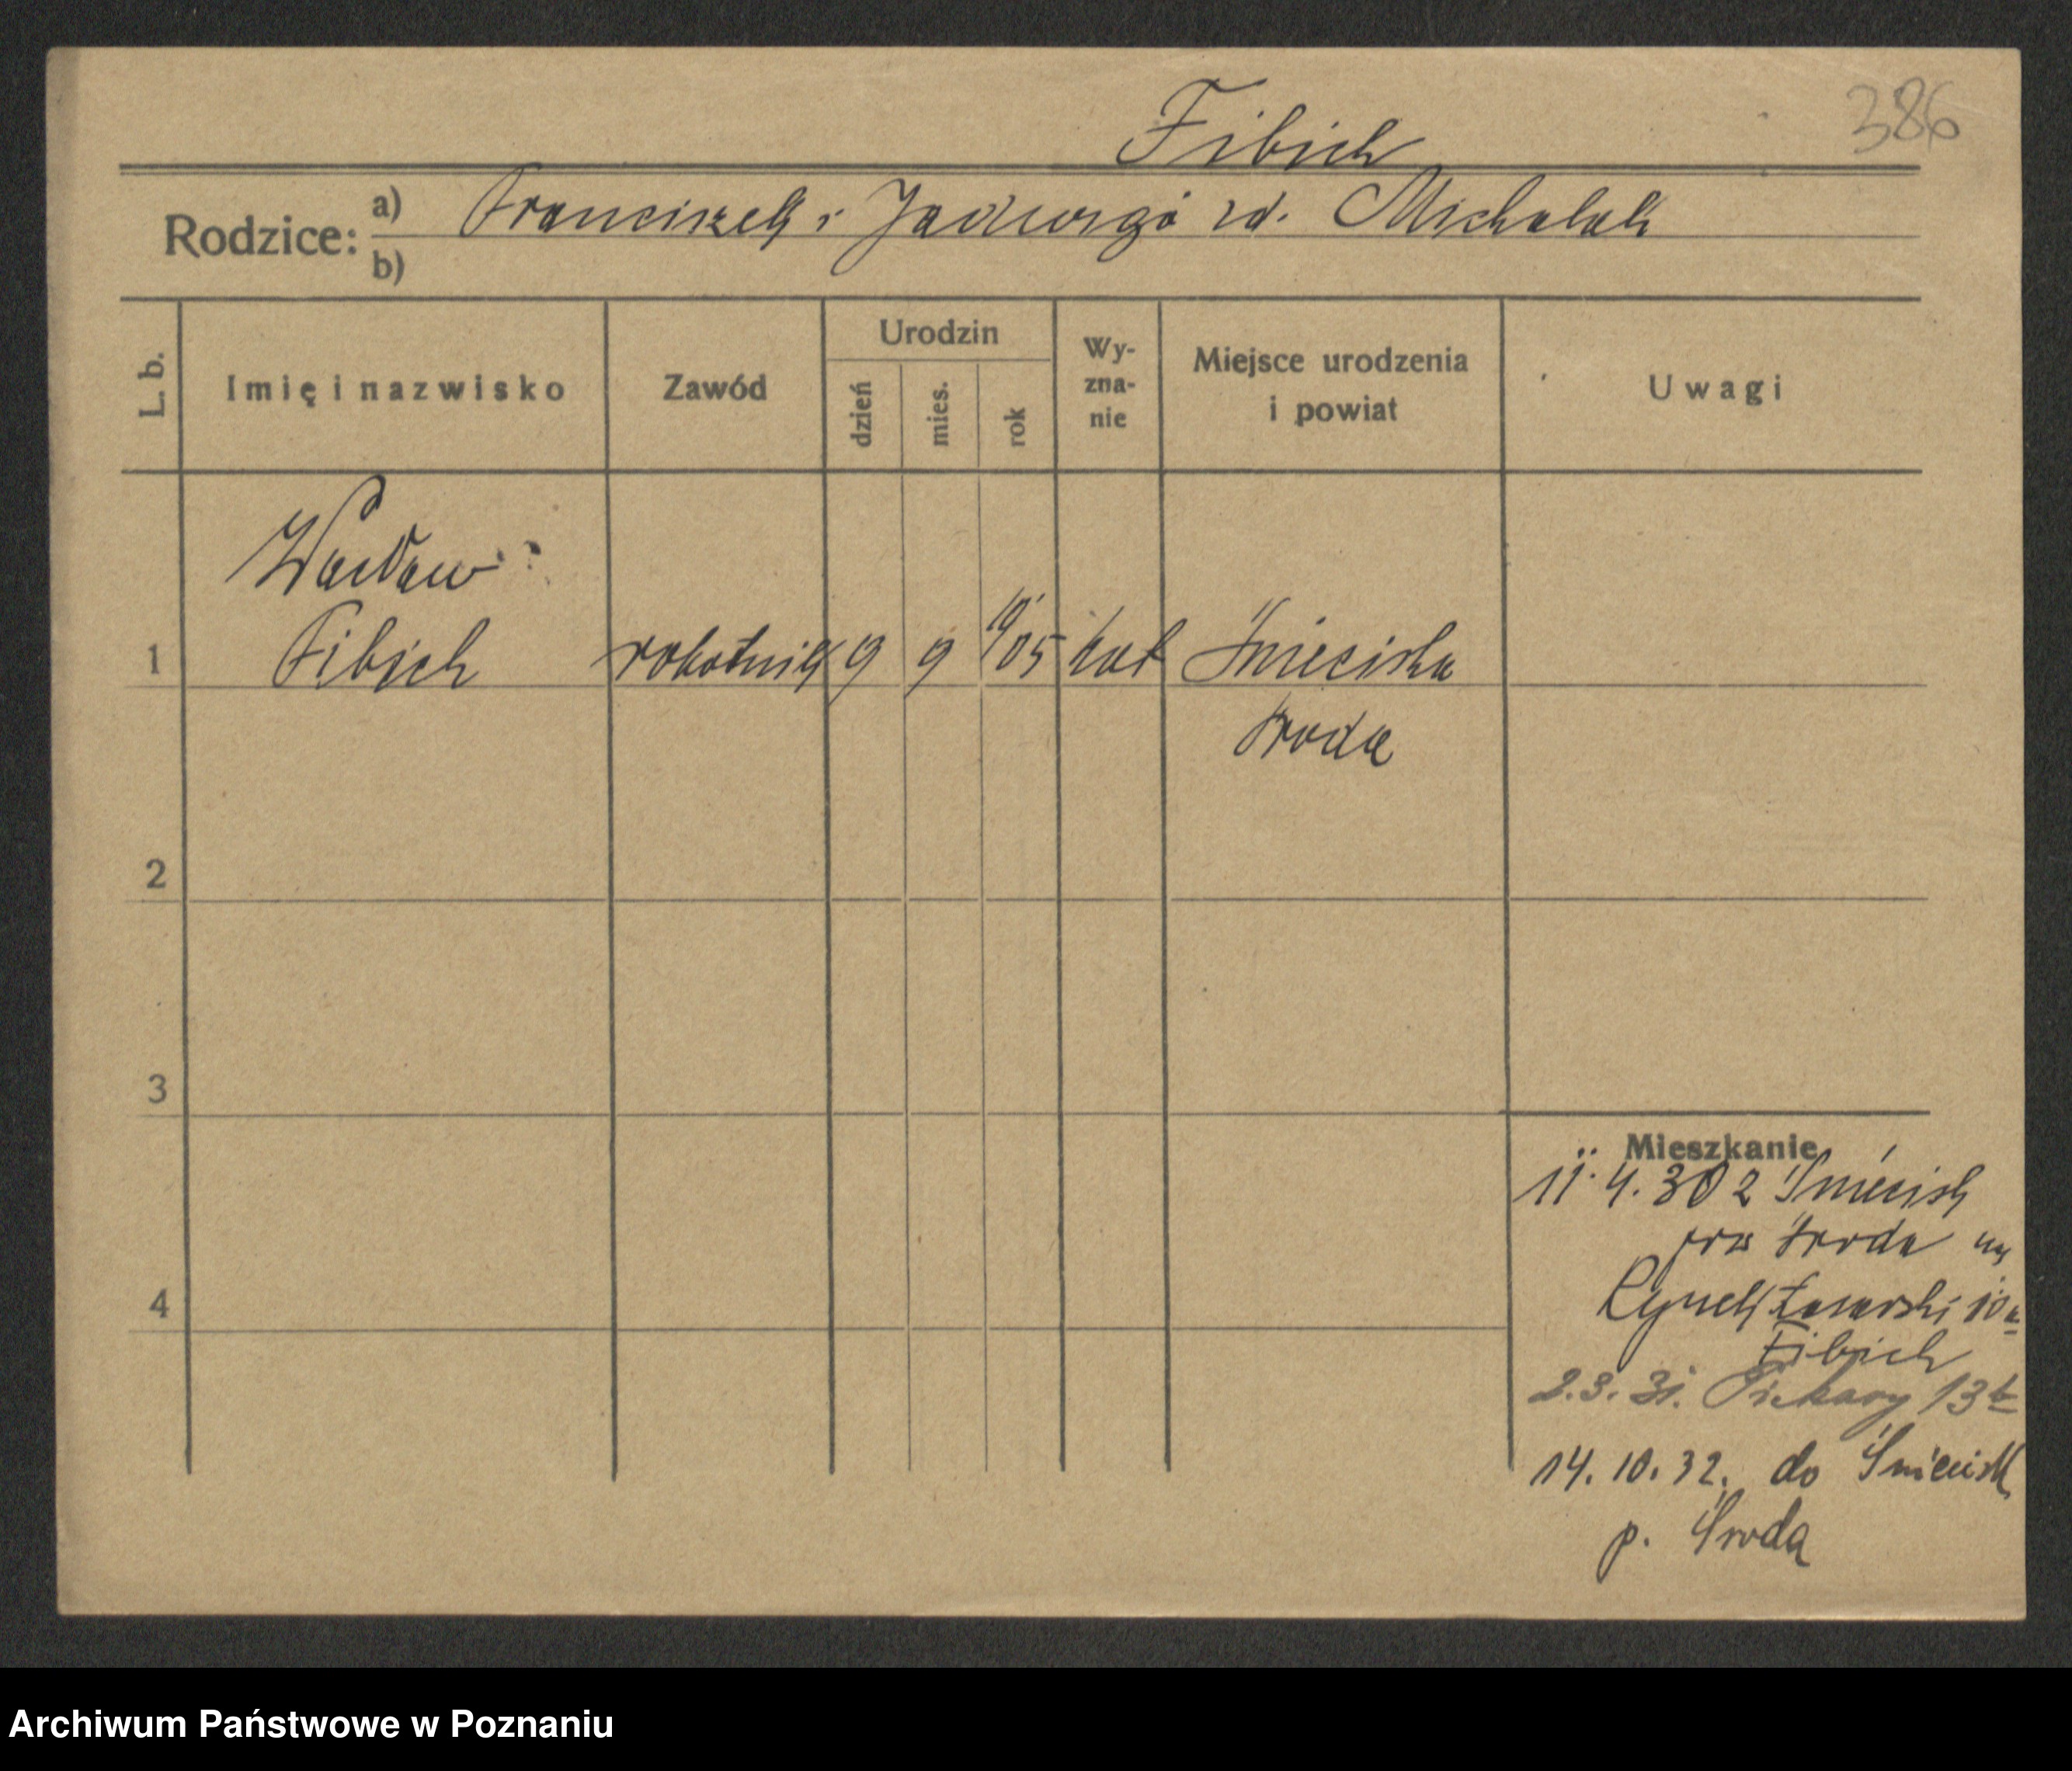 386
Fibich
Rodzice: a) Franciszek i Jadwiga zd. Michalak
b)
L. b. Imię i nazwisko Zawód Urodzin dzień mies. rok Wy-zna-nie Miejsce urodzenia i powiat Uwagi
Wacław
1 Fibich robotnik 9 9 1905 kat Śnieciska
Środa
2
3
Mieszkanie
11. 4. 30 z Śniecisk
pow Środa na
4 Rynek Łazarski 10a
Fibich
2.3.31. Piekary 13b
14. 10. 32. do Śniecisk
p. Środa
Archiwum Państwowe w Poznaniu